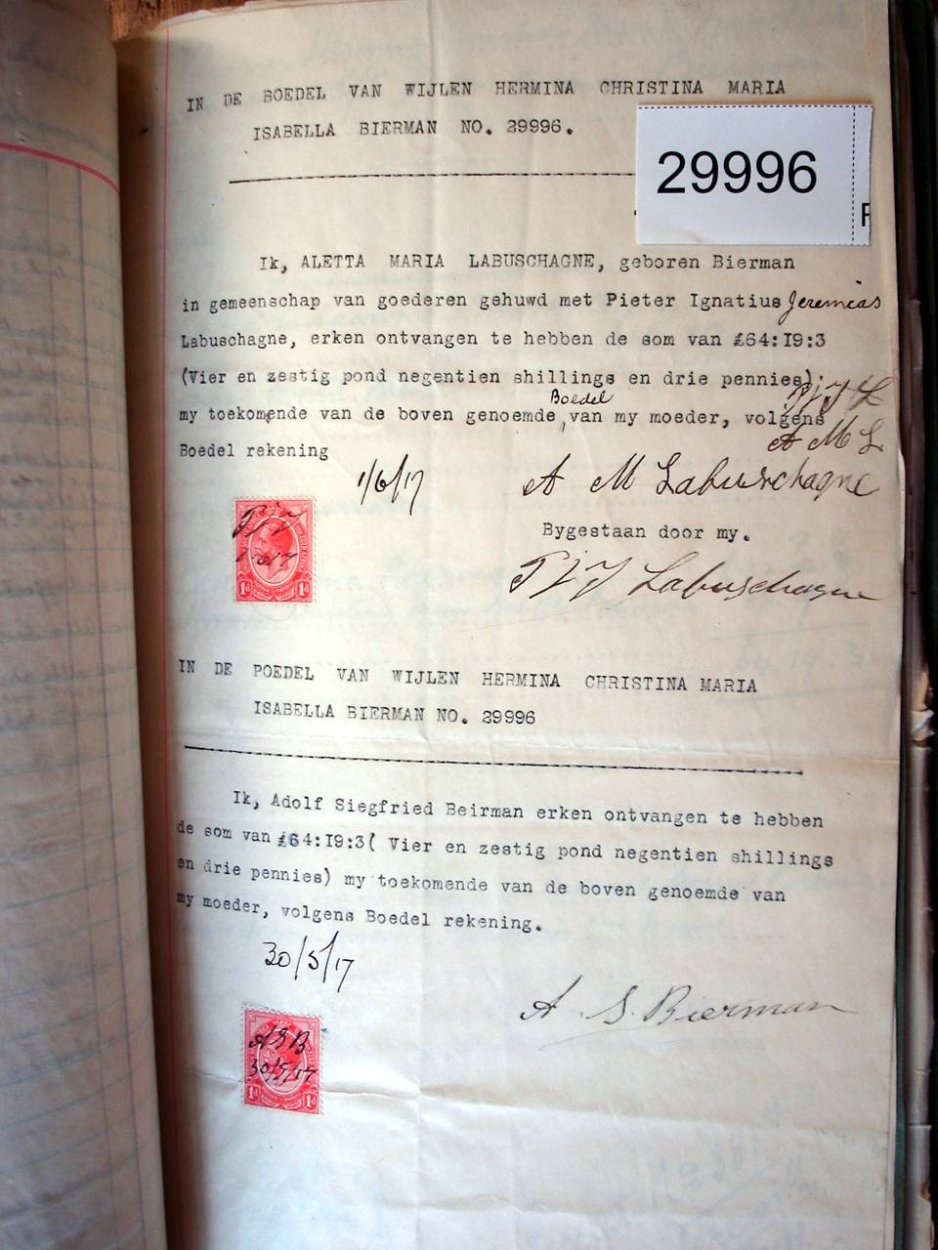 IN DE BOEDEL VAN WIJLEN HERMINA CHRISTINA MARIA
ISABELLA BIERMAN NO. 29996.
29996
Ik, ALETTA MARIA LABUSCHAGNE, geboren Bierman
in gemeenschap van goederen gehuwd met Pieter Ignatius Jeremias
Labuschagne, erken ontvangen te hebben de som van £64:I9:3
(Vier en zestig pond negentien shillings en drie pennies);
P J J L
Boedel
my toekomende van de boven genoemde, van my moeder, volgens
A M L
Boedel rekening
1/6/17
A M Labuschagne
Bygestaan door my.
P J J Labuschagne
P J J
1d 1d
IN DE POEDEL VAN WIJLEN HERMINA CHRISTINA MARIA
ISABELLA BIERMAN NO. 29996
Ik, Adolf Siegfried Beirman erken ontvangen te hebben
de som van £64:I9:3( Vier en zestig pond negentien shillings
en drie pennies) my toekomende van de boven genoemde van
my moeder, volgens Boedel rekening.
30/5/17
A S. Bierman
A S B
30/5/17
1d 1d